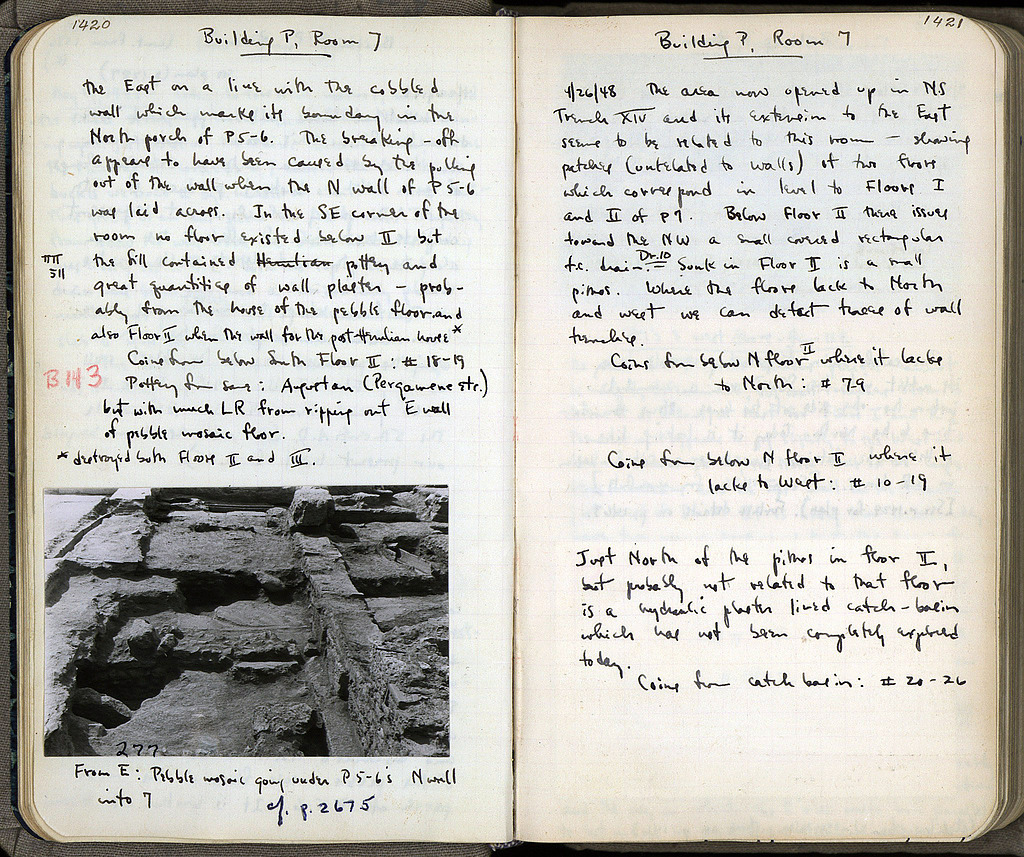 1420
Building P, Room 7
the East on a line with the cobbled
wall which marks its boundary in the
North porch of P5-6. The breaking-off
appears to have been caused by the pulling
out of the wall when the N wall of P 5-6
was laid across. In the SE corner of the
room no floor existed below II but
the fill contained Herulian pottery and
ΠΠ
511
great quantities of wall plaster – prob-
ably from the house of the pebble floor and
also Floor II when the wall for the post Herulian house*
Coins from below South Floor II: # 18-19
B 143
Pottery from same: Augustan (Pergamene etc.)
but with much LR from ripping out E wall
of pebble mosaic floor.
* destroyed both Floors II and III.
277
From E: Pebble mosaic going under P5-6's N wall
into 7
cf. p. 2675
1421
Building P, Room 7
4/26/48 The area now opened up in NS
Trench XIV and its extension to the East
seems to be related to this room – showing
patches (unrelated to walls) of two floors
which correspond in level to Floors I
and II of P7. Below Floor II there issues
toward the NW a small covered rectangular
t.c. drain Dr. 10. Sunk in Floor II is a small
pithos. Where the floors lack to North
and west we can detect traces of wall
trenches.
Coins from below N floor II where it lacks
to North: # 7-9
Coins from below N floor II where it
lacks to West: # 10-19
Just North of the pithos in floor II,
but probably not related to that floor
is a hydraulic plaster lined catch-basin
which has not been completely explored
today.
Coins from catch basin: # 20-26